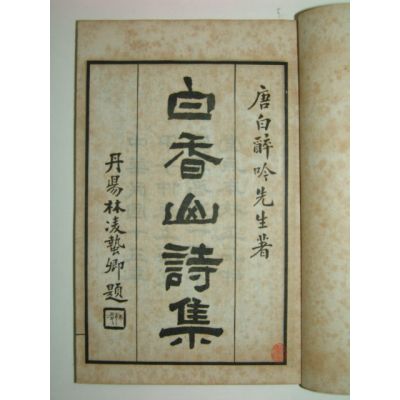 唐白醉吟先生著
白香山詩集
丹陽林淩藝卿題